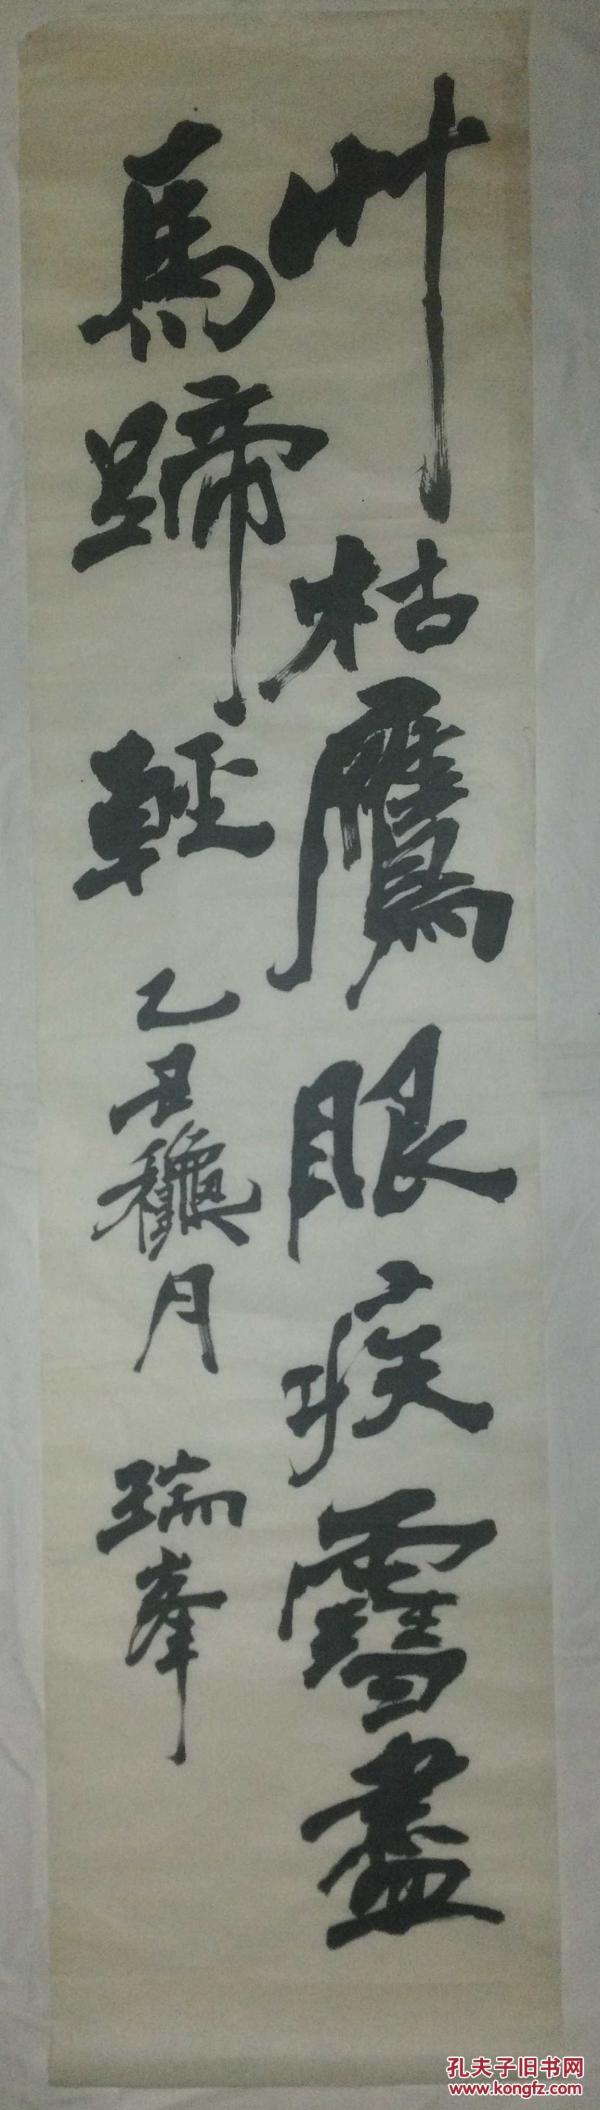 艸枯鷹眼疾雪盡
馬蹄輕
乙丑龝月
瑞峯
孔夫子旧书网
www.kongfz.com